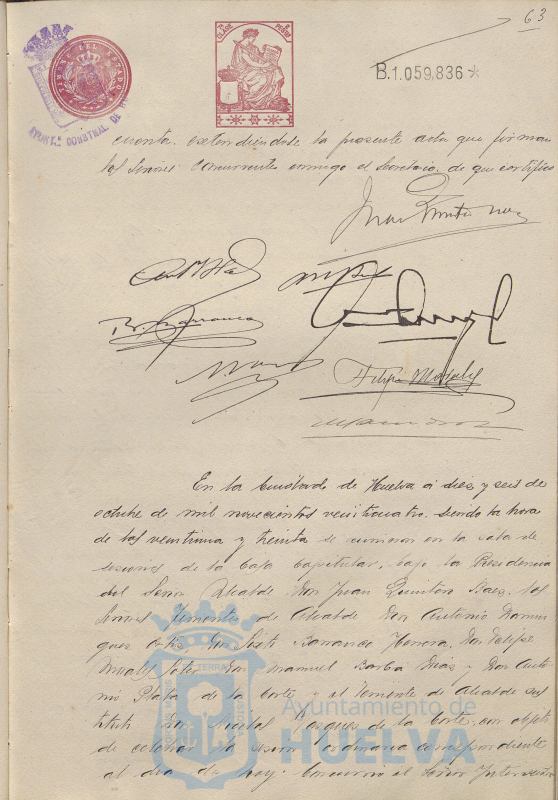 63
7ª CLASE
8 PESETAS
TIMBRE DEL ESTADO
AYUNTº CONSTNAL DE
B.1.059,836
cuenta. extendiéndose la presente acta que firman
los Señores Concurrentes conmigo el Secretario de que certifico
Juan Quintero
B. Barranco
Felipe Morales
En la Ciudad de Huelva á diez y seis de
octubre de mil novecientos veinticuatro. siendo la hora
de las veintiuna y treinta se reunieron en la sala de
sesiones de la Casa Capitular, bajo la Presidencia
del Señor Alcalde Don Juan Quintero Baez, los
Señores Tenientes de Alcalde Don Antonio Domin
guez Ortiz Don Barranco Herrera, Don Felipe
Morales Don Manuel Barba Diaz y Don Anto
nio Plata de la Corte y el Teniente de Alcalde sus
tituto Don Vazquez de la Corte, con objeto
de celebrar la sesión ordinaria correspondiente
al dia de hoy. Concurrió el Señor Interventor
Ayuntamiento de
HUELVA